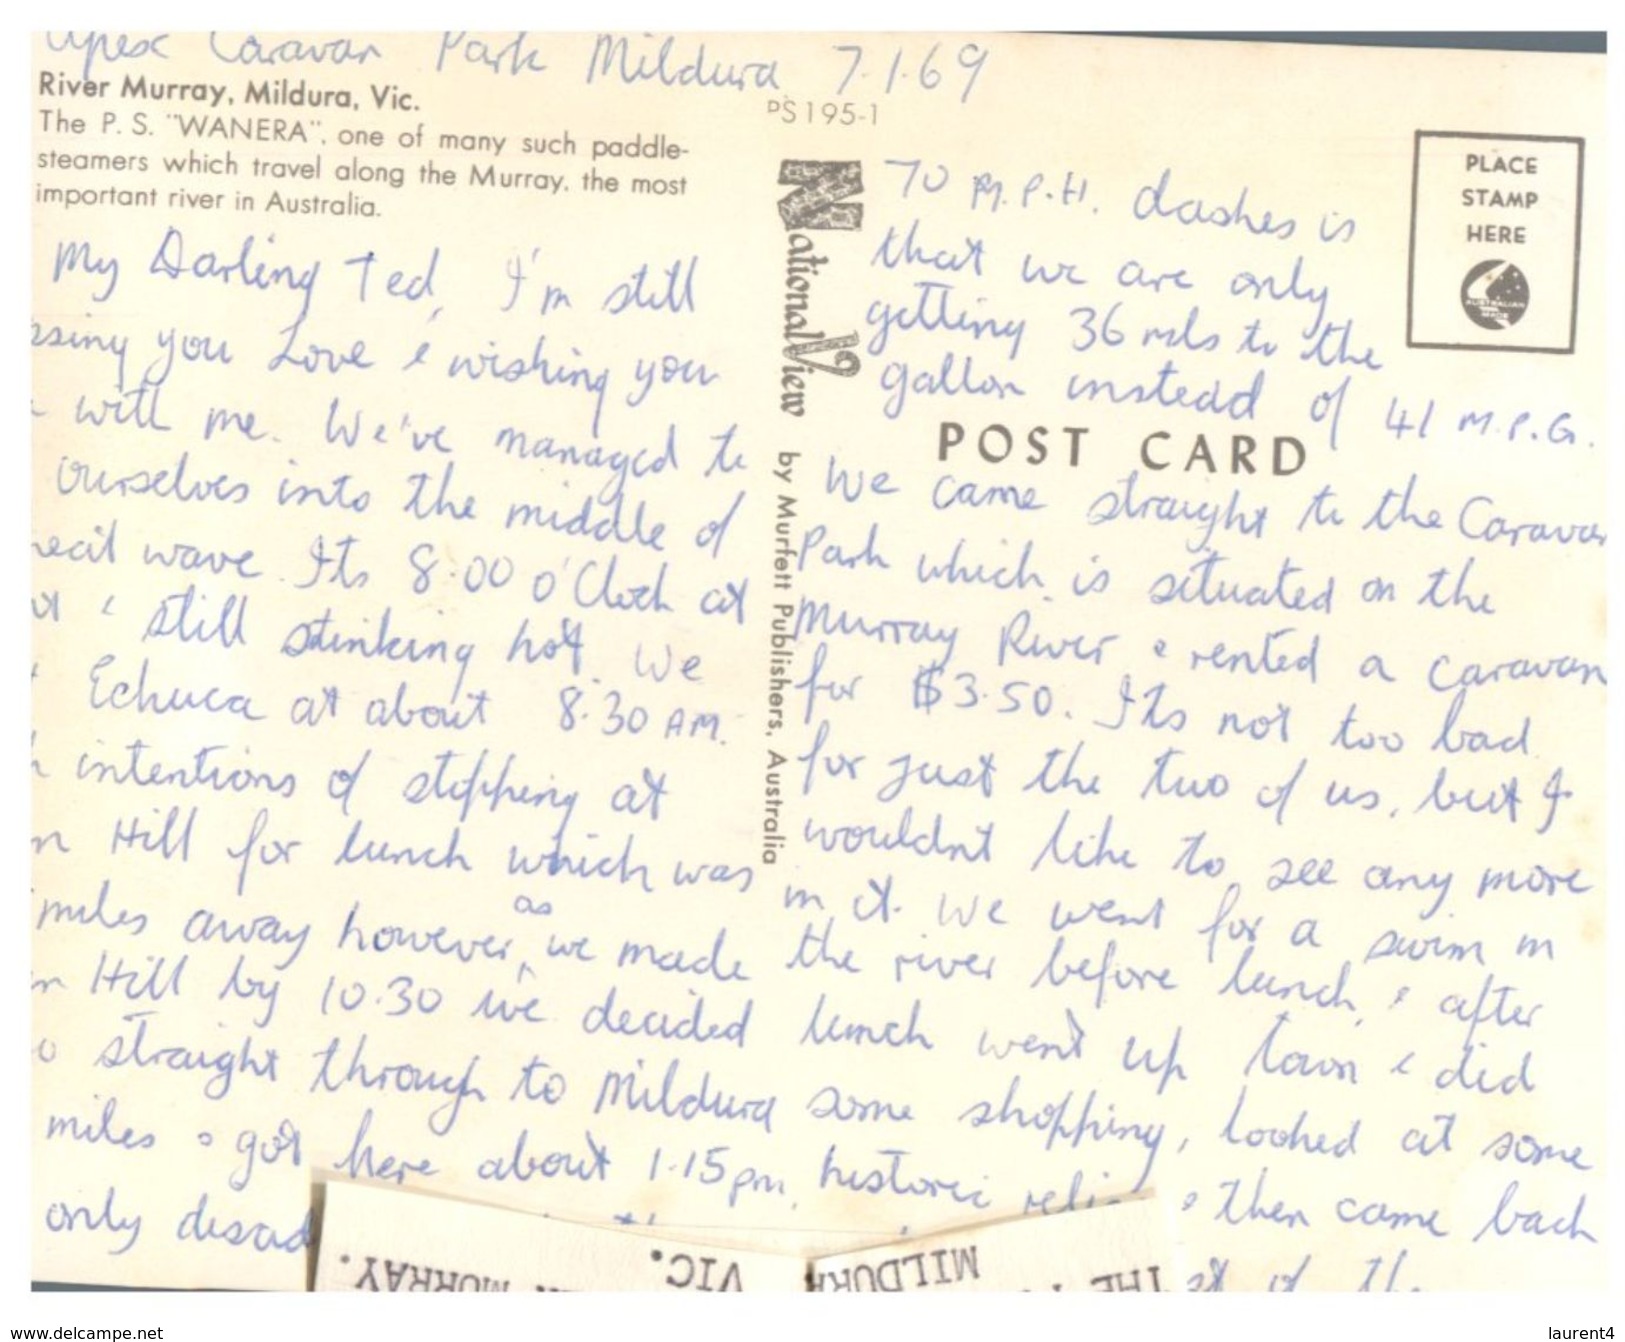 Apex Caravan Park Mildura 7.1.69
River Murray, Mildura, Vic.
The P. S. "WANERA", one of many such paddle-
steamers which travel along the Murray, the most
important river in Australia.
My Darling Ted, I'm still
ssing you Love & wishing you
with me. We've managed to
ourselves into the middle of
heat wave. Its 8.00 o'Clock at
& still stinking hot. We
Echuca at about 8.30 AM.
intentions of stopping at
n Hill for lunch which was
miles away however, as we made
n Hill by 10.30 we decided
o straight through to Mildura
miles & got here about 1.15pm,
only disad
PS195-1
National View by Murfett Publishers, Australia
PLACE
STAMP
HERE
AUSTRALIAN
MADE
POST CARD
70 M.P.H. dashes is
that we are only
getting 36 mls to the
gallon instead of 41 M.P.G.
We came straight to the Caravan
Park which is situated on the
Murray River & rented a caravan
for $3.50. Its not too bad
for just the two of us, but I
wouldnt like to see any more
in it. We went for a swim in
the river before lunch, & after
lunch went up town & did
some shopping, looked at some
historic reli & then came back
st of th
MURRAY.
VIC.
MILDURA
THE
www.delcampe.net
laurent4